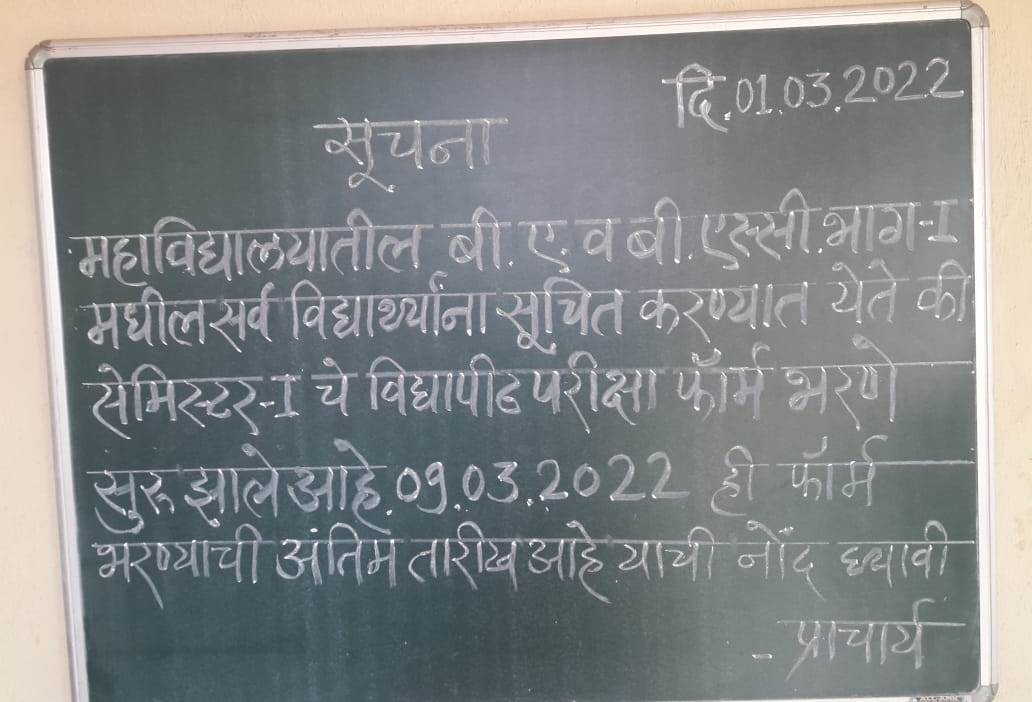 दि.01.03.2022
सूचना
महाविद्यालयातील बी. ए. व बी. एस्सी. भाग-I
मधील सर्व विद्यार्थ्यांना सूचित करण्यात येते की
सेमिस्टर-I चे विद्यापीठ परीक्षा फॉर्म भरणे
सुरू झाले आहे. 09.03.2022 ही फॉर्म
भरण्याची अंतिम तारीख आहे याची नोंद घ्यावी
- प्राचार्य